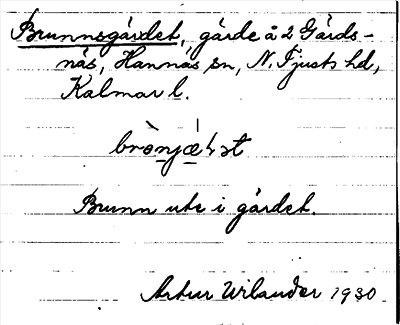 Brunnsgärdet, gärde å 2 Gärds-
näs, Hannäs sn, N. Tjusts hd,
Kalmar l.
Brunn ute i gärdet.
Artur Wilander 1930.